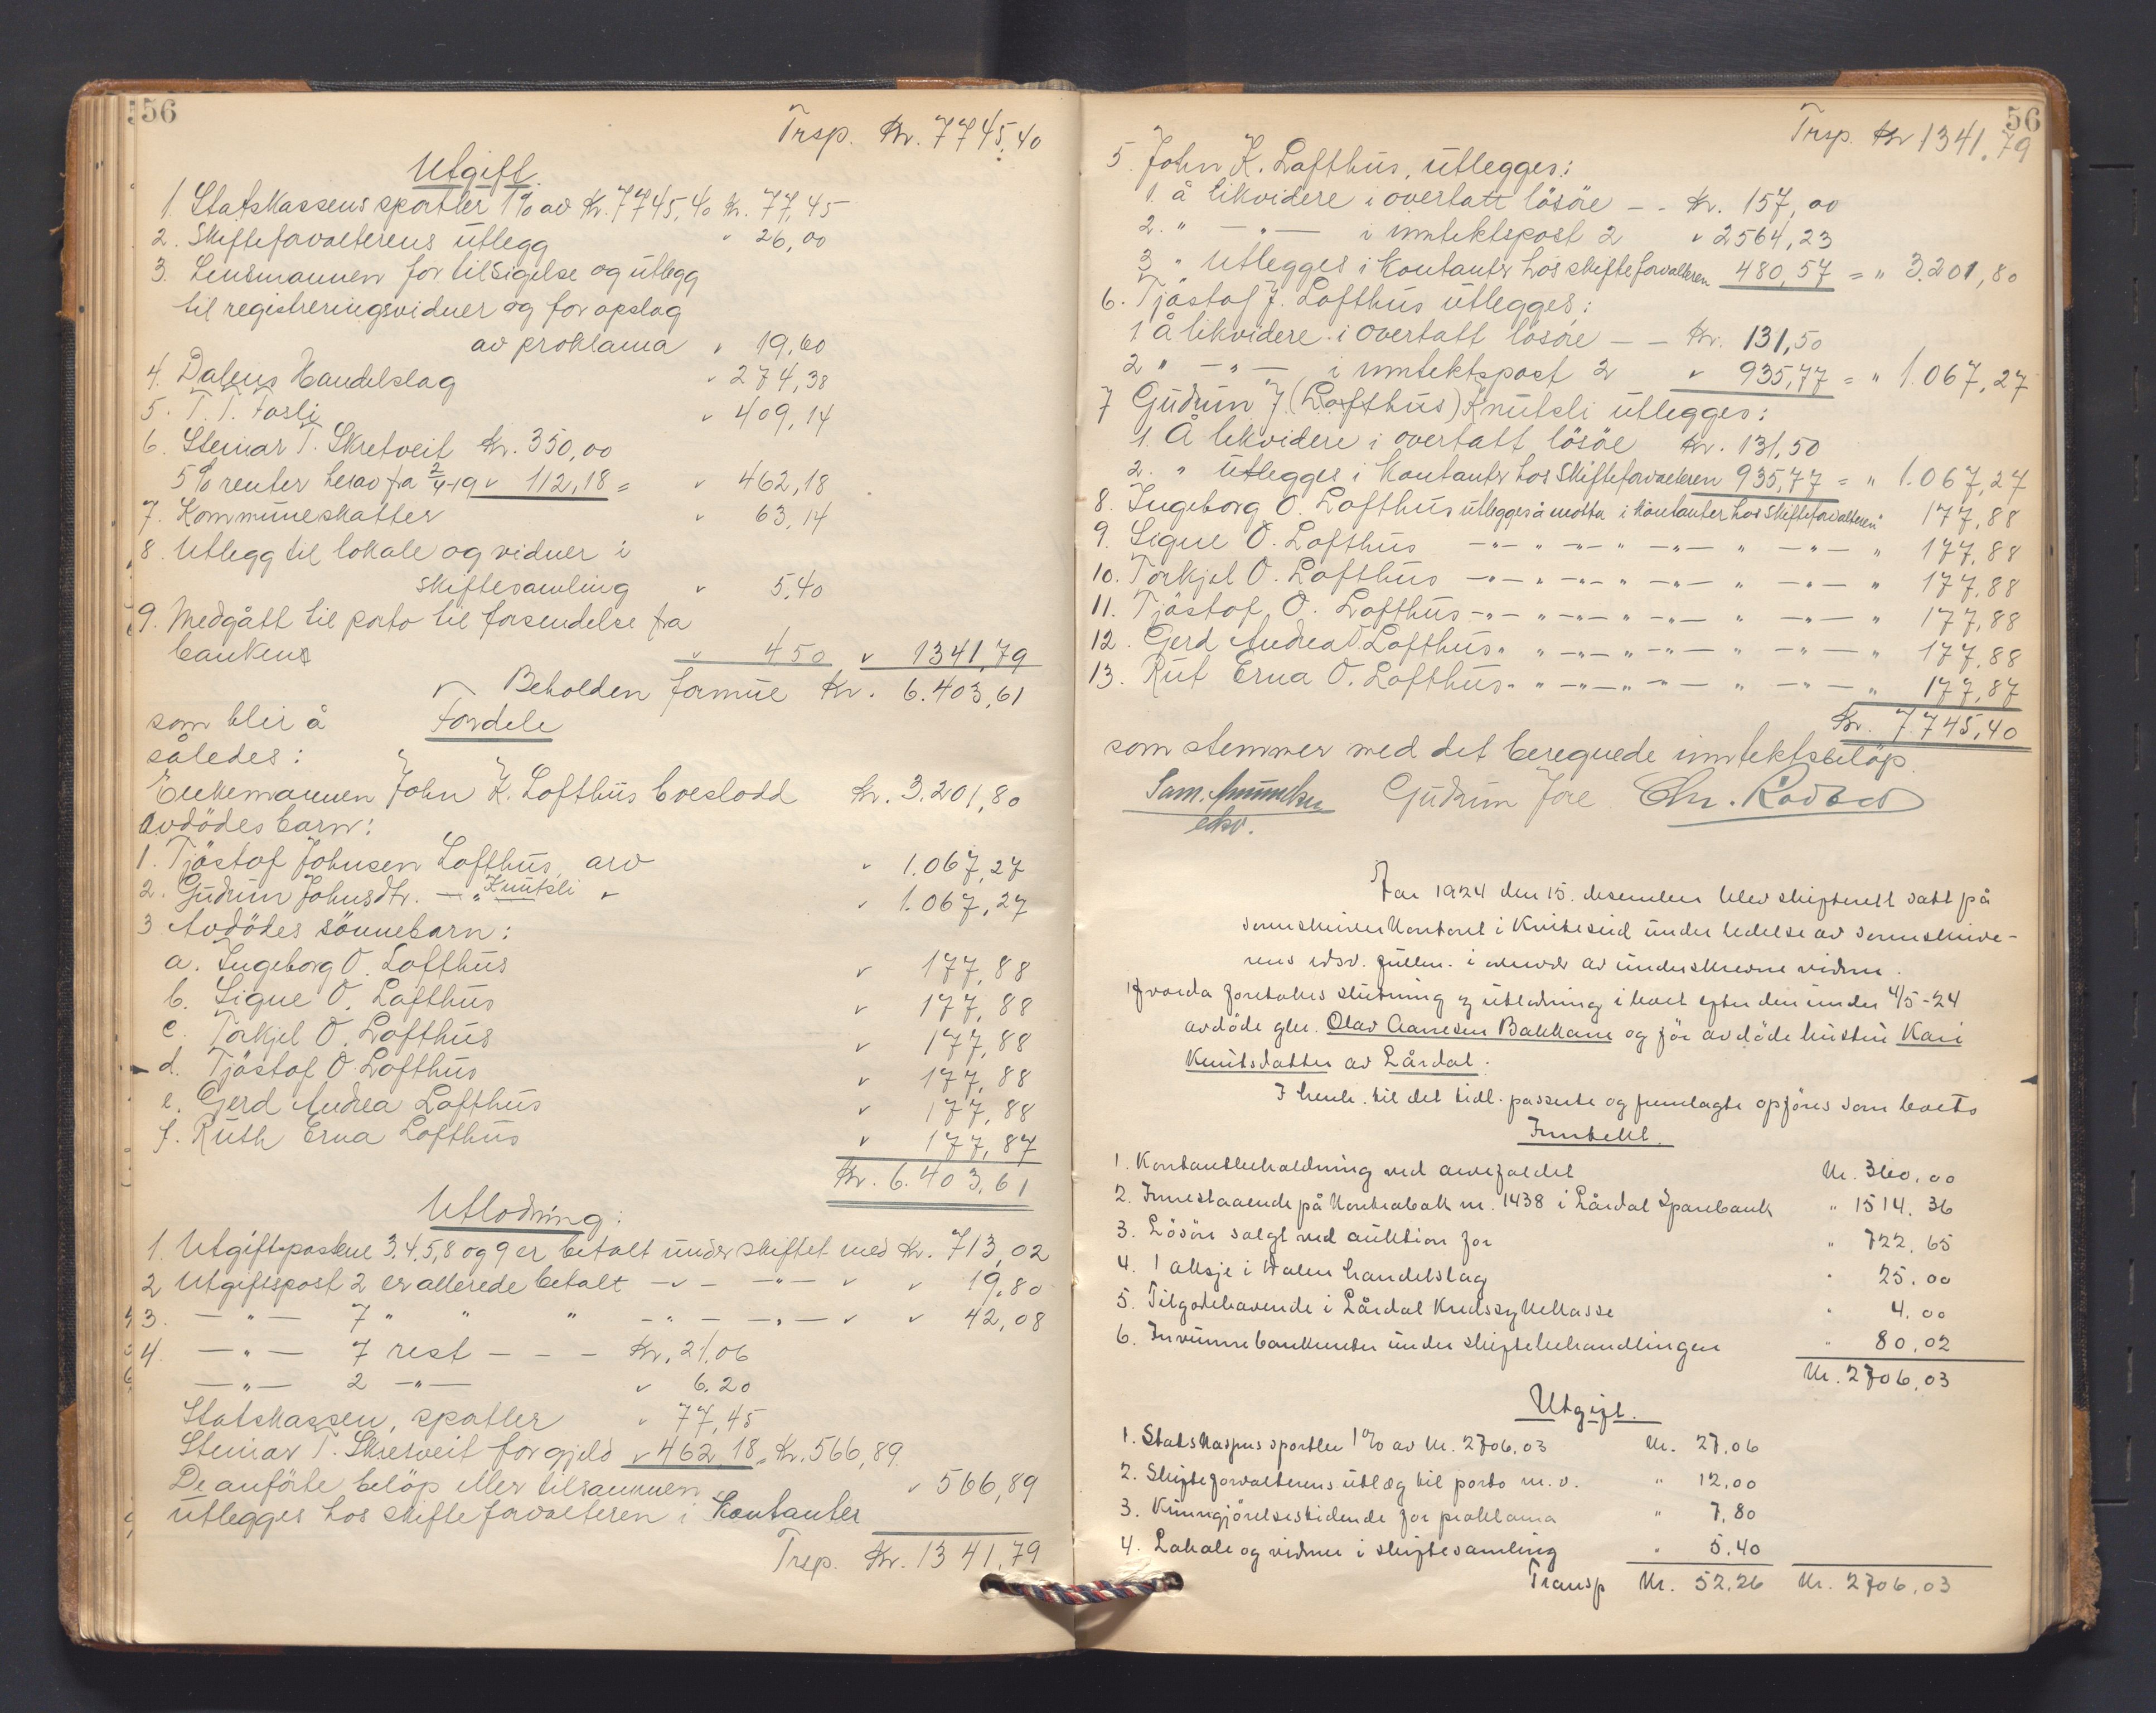 56
Trsp. Kr. 7745,40
Utgift.
1. Statskassens sportler 1% av Kr. 7745,40 Kr. 77,45
2. Skifteforvalterens utlegg " 26,00
3. Lensmannen for tilsigelse og utlegg
til registreringsvidner og for opslag
av proklama " 19,60
4. Dalens Handelslag " 274,38
5. T. T. Fosli " 409,14
6. Steinar T. Skretveit Kr. 350,00
5% renter herav fra 2/4-19 " 112,18 = " 462,18
7. Kommuneskatter " 63,14
8. Utlegg til lokale og vidner i
skiftesamling " 5.40
9. Medgått til porto til forsendelse fra
banken " 4 50 " 1341,79
Beholden formue Kr. 6.403,61
som blir å fordele
således:
Enkemannen John K. Lofthus boeslodd Kr. 3.201,80
Avdödes barn:
1. Tjöstof Johnsen Lofthus, arv " 1.067,27
2. Gudrun Johnsdtr. — " Knutsli " " 1.067,27
3 Avdödes sönnebarn:
a. Ingeborg O. Lofthus " 177,88
b. Signe O. Lofthus " 177,88
c. Torkjel O. Lofthus " 177,88
d. Tjöstof O. Lofthus " 177,88
e. Gerd Andrea Lofthus " 177,88
f. Ruth Erna Lofthus " 177,87
Kr. 6.403,61
Utlodning:
1. Utgiftspostene 3.4.5,8 og 9 er betalt under skiftet med Kr. 713,02
2 Utgiftspost 2 er allerede betalt — " — — " — " " 19,80
3. — " — 7 " " " — " — — " — " " 42,08
4. — " — 7 rest — — — Kr. 21,06
— " — 2 — " — " 6.20
Statskassen, sportler " 77,45
Steinar T. Skretveit for gjeld " 462,18 = Kr. 566,89
De anförte belöp eller tilsammen " 566,89
utlegges hos skifteforvalteren i kontanter
Trsp. Kr. 1341,79
56
Trsp. Kr 1341,79
5 John K. Lofthus, utlegges:
1. å likvidere i overtatt lösöre — - Kr. 157,00
2. " — " — i inntektspost 2 " 2564,23
3 " Utlegges i kontanter hos skifteforvalteren 480,57 = " 3.201,80
6. Tjöstof J. Lofthus utlegges:
1 Å likvidere i overtatt lösöre — — Kr. 131,50
2 " — " — i inntektspost 2 " 935,77 = " 1.067,27
7 Gudrun J. (Lofthus) Knutsli utlegges:
1. Å likvidere i overtatt lösöre Kr. 131,50
2. " utlegges i kontanter hos skifteforvalteren 935,77 = " 1.067,27
8. Ingeborg O. Lofthus utlegges å motta i kontanter hos skifteforvalteren " 177,88
9. Signe O. Lofthus — " — " — " — " — " — " — " — " 177,88
10. Torkjel O. Lofthus — " — " — " — " — " — " — " — " 177,88
11. Tjöstof O. Lofthus — " — " — " — " — " — " — " — " 177,88
12. Gerd Andrea O. Lofthus " " — " — " — " — " — " — " 177,88
13. Rut Erna O. Lofthus " " — " — " — " — " — " — " 177,87
Kr. 7.745,40
som stemmer med det beregnede inntektsbelöp.
Gudrun Jore
År 1924 den 15. desember blev skifterett satt på
sorenskriverkontoret i Kviteseid under ledelse av sorenskrive-
rens edsv. fullm. i nærvær av underskrevne vidner.
Hvorda foretokes slutning og utlodning i boet efter den under 4/5-24
avdöde gbr. Olav Aanesen Bakkane og för avdöde hustru Kari
Knutsdatter av Lårdal.
I henh. til det tidl. passerte og fremlagte opföres som boets
Inntekt.
1. Kontantbeholdning ved arvefaldet Kr. 360,00
2. Innestaaende på kontrabok nr. 1438 i Lårdal Sparebank " 1514.36
3. Lösöre solgt ved auktion for " 722.65
4. 1 aksje i Dalen handelslag " 25.00
5. Tilgodehavende i Lårdal Kredssykekasse " 4.00
6. Invunne bankrenter under skiftebehandlingen " 80.02
Kr. 2706,03
Utgift.
1. Statskassens sportler 1% av Kr. 2706,03 Kr. 27,06
2. Skifteforvalterens utlæg til porto m.v. " 12,00
3. Kunngjörelsestidende for proklama " 7,80
4. Lokale og vidner i skiftesamling " 5.40
Transp Kr. 52.26 Kr. 2706,03